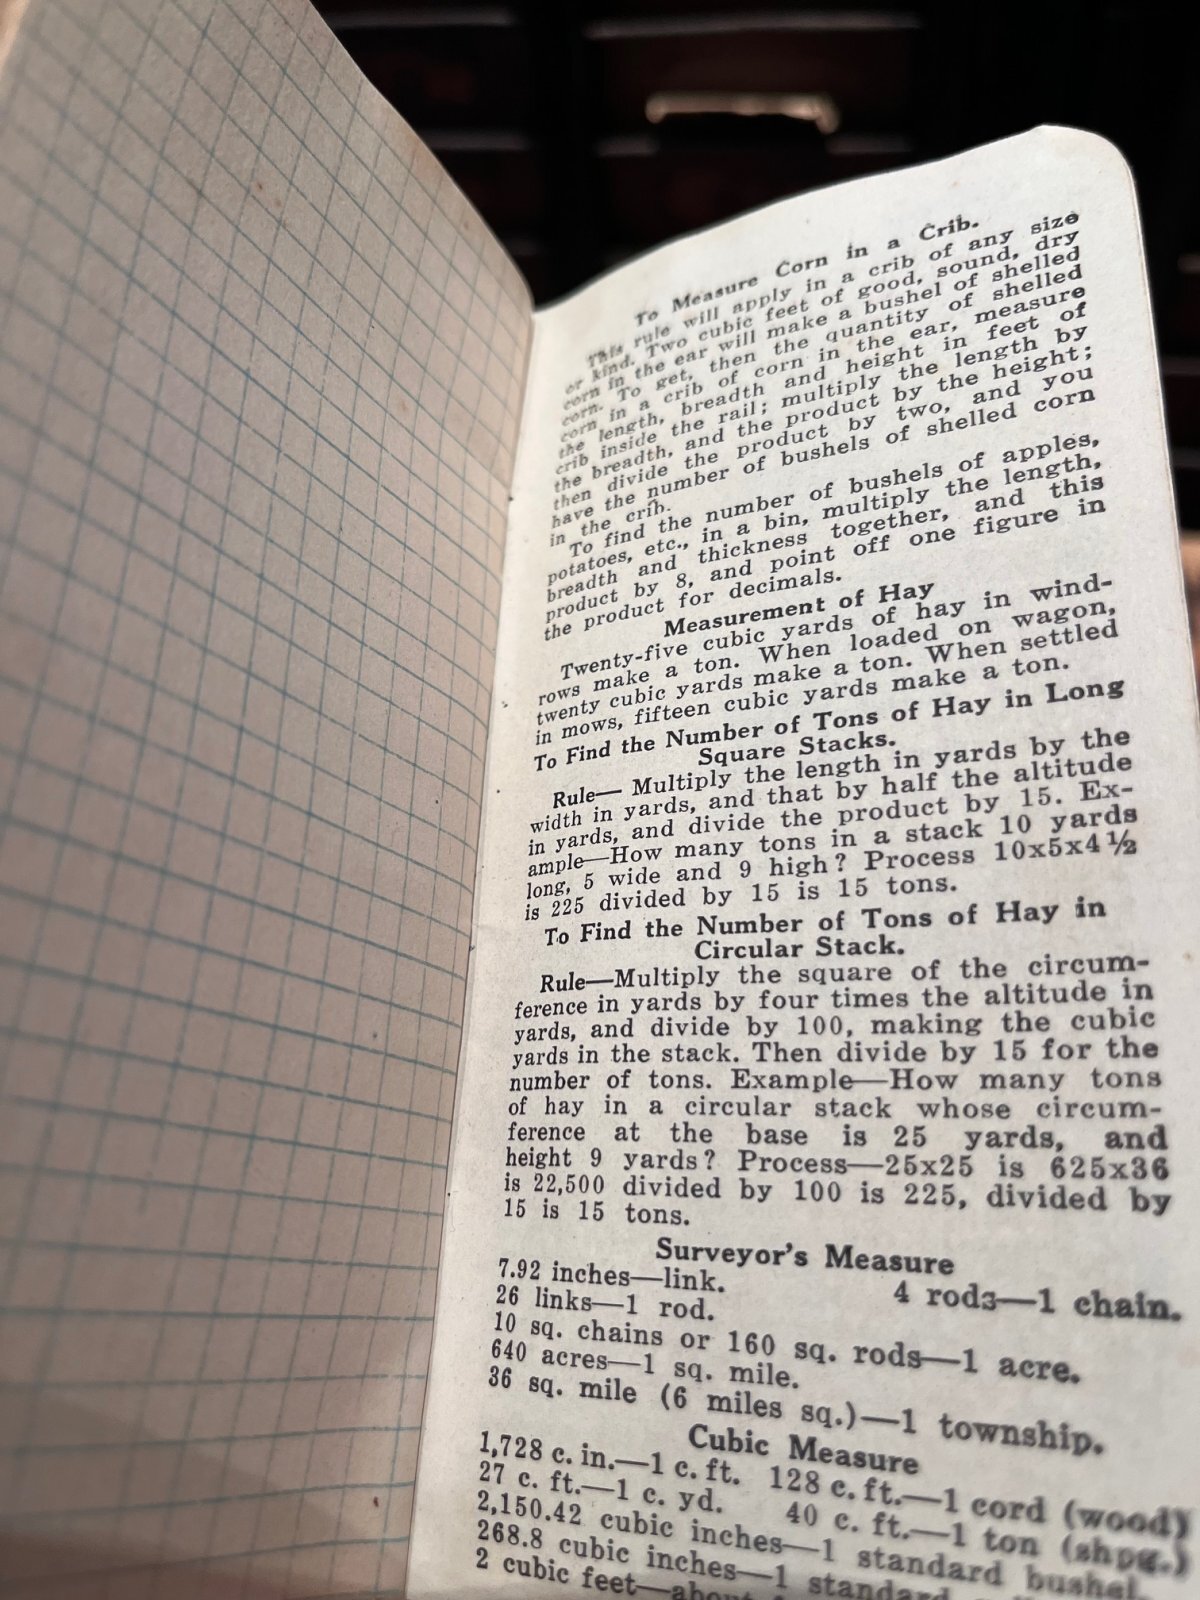 To Measure Corn in a Crib.
This rule will apply in a crib of any size
or kind. Two cubic feet of good, sound, dry
corn in the ear will make a bushel of shelled
corn. To get, then the quantity of shelled
corn in a crib of corn in the ear, measure
the length, breadth and height in feet of
crib inside the rail; multiply the length by
the breadth, and the product by the height;
then divide the product by two, and you
have the number of bushels of shelled corn
in the crib.
To find the number of bushels of apples,
potatoes, etc., in a bin, multiply the length,
breadth and thickness together, and this
product by 8, and point off one figure in
the product for decimals.
Measurement of Hay
Twenty-five cubic yards of hay in wind-
rows make a ton. When loaded on wagon,
twenty cubic yards make a ton. When settled
in mows, fifteen cubic yards make a ton.
To Find the Number of Tons of Hay in Long
Square Stacks.
Rule— Multiply the length in yards by the
width in yards, and that by half the altitude
in yards, and divide the product by 15. Ex-
ample—How many tons in a stack 10 yards
long, 5 wide and 9 high? Process 10x5x4½
is 225 divided by 15 is 15 tons.
To Find the Number of Tons of Hay in
Circular Stack.
Rule—Multiply the square of the circum-
ference in yards by four times the altitude in
yards, and divide by 100, making the cubic
yards in the stack. Then divide by 15 for the
number of tons. Example—How many tons
of hay in a circular stack whose circum-
ference at the base is 25 yards, and
height 9 yards? Process—25x25 is 625x36
is 22,500 divided by 100 is 225, divided by
15 is 15 tons.
Surveyor's Measure
7.92 inches—link. 4 rods—1 chain.
26 links—1 rod.
10 sq. chains or 160 sq. rods—1 acre.
640 acres—1 sq. mile.
36 sq. mile (6 miles sq.)—1 township.
Cubic Measure
1,728 c. in.—1 c. ft. 128 c. ft.—1 cord (wood)
27 c. ft.—1 c. yd. 40 c. ft.—1 ton (shpg.)
2,150.42 cubic inches—1 standard bushel.
268.8 cubic inches—1 standard
2 cubic feet—about